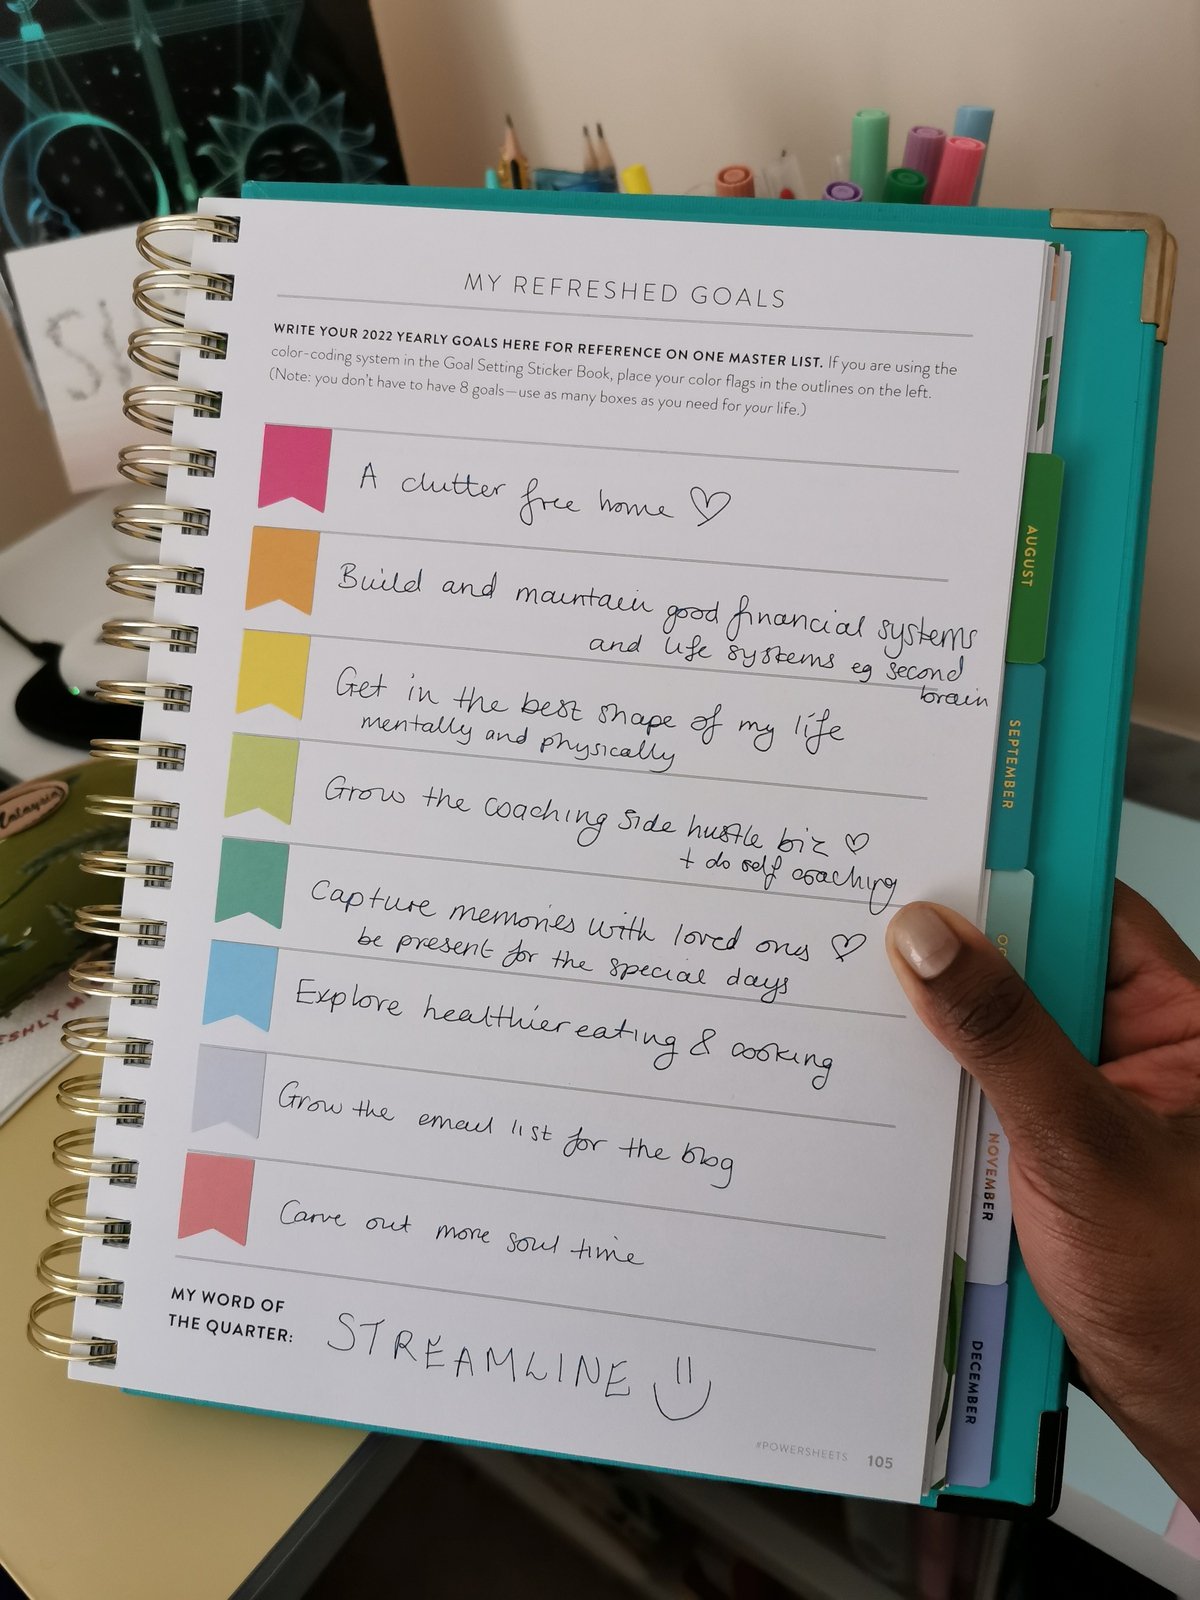 MY REFRESHED GOALS
WRITE YOUR 2022 YEARLY GOALS HERE FOR REFERENCE ON ONE MASTER LIST. If you are using the
color-coding system in the Goal Setting Sticker Book, place your color flags in the outlines on the left.
(Note: you don't have to have 8 goals—use as many boxes as you need for your life.)
A clutter free home ♡
Build and maintain good financial systems
and life systems eg second
brain
Get in the best shape of my life
mentally and physically
Grow the coaching side hustle biz ♡
+ do self coaching
Capture memories with loved ones ♡
be present for the special days
Explore healthier eating & cooking
Grow the email list for the blog
Carve out more soul time
MY WORD OF
THE QUARTER:
STREAMLINE
#POWERSHEETS 105
AUGUST
SEPTEMBER
NOVEMBER
DECEMBER